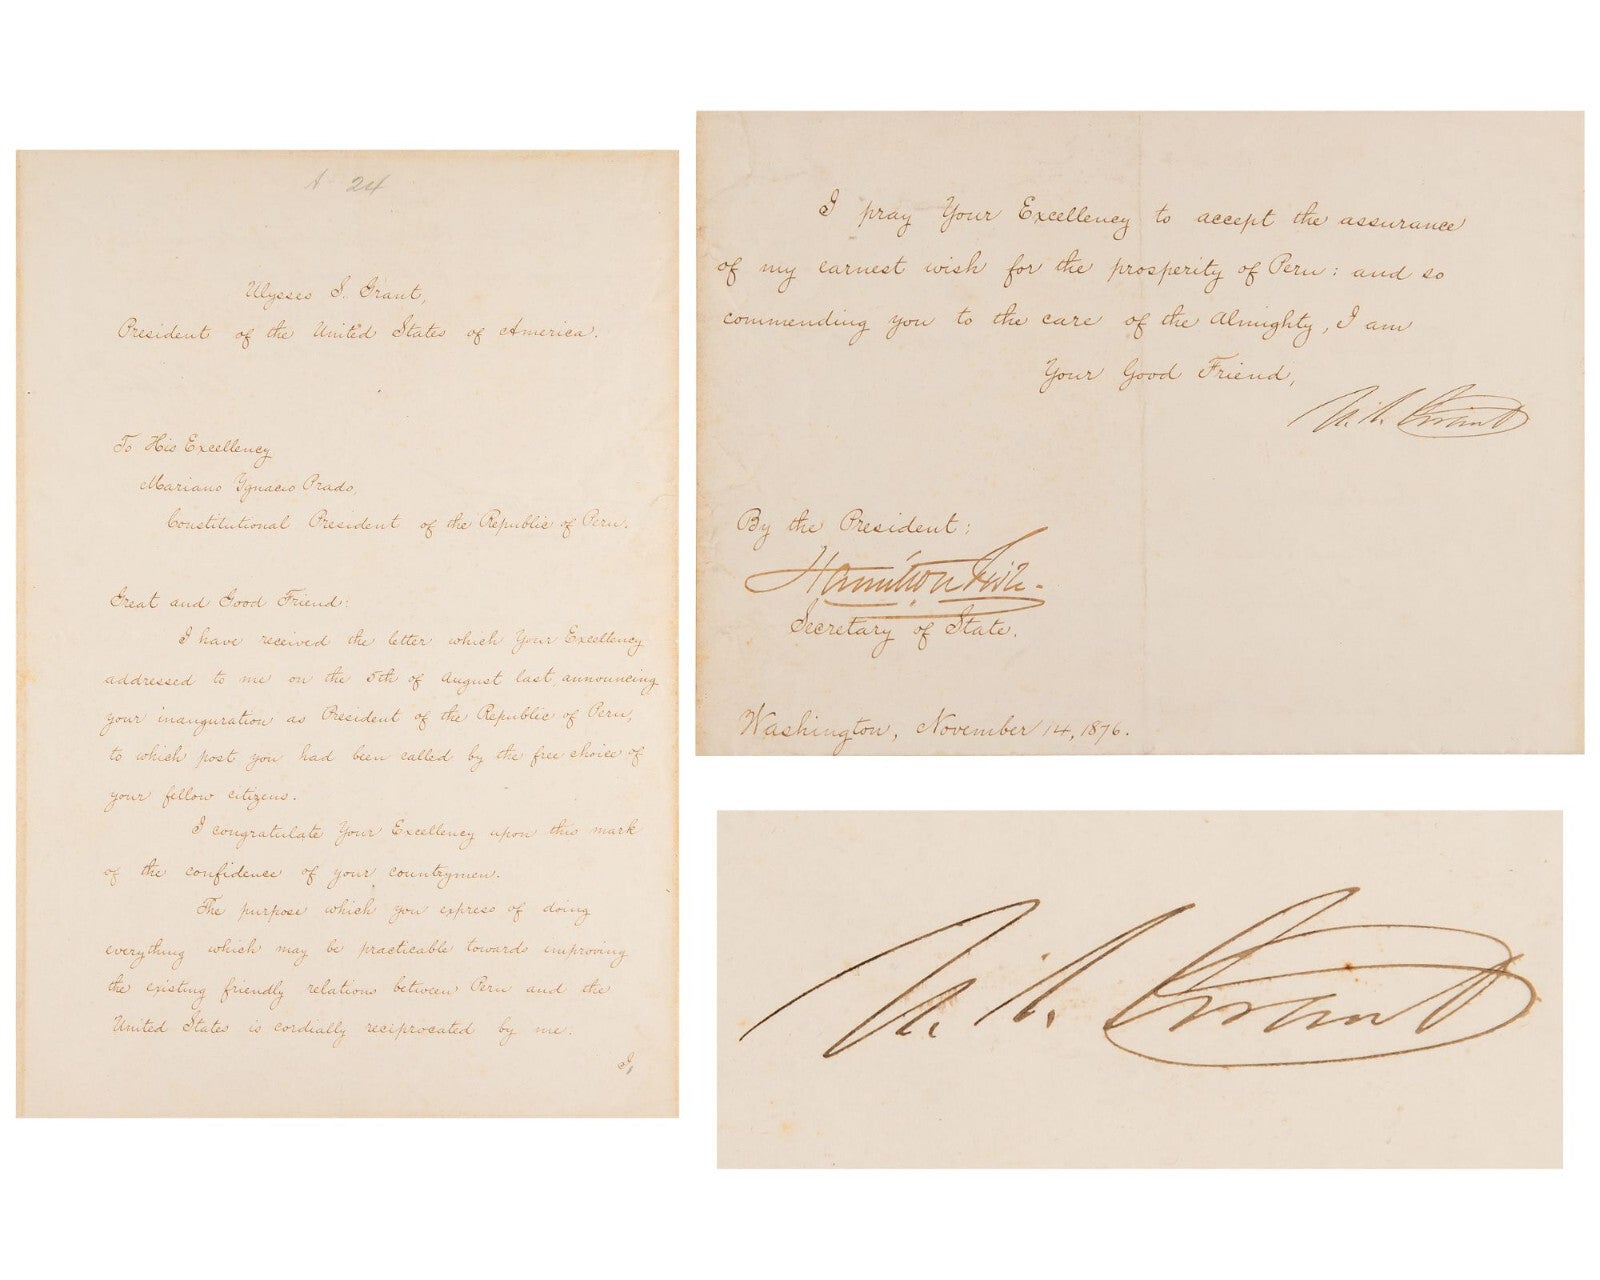 A 24
Ulysses S. Grant,
President of the United States of America.
To His Excellency
Mariano Ygnacio Prado,
Constitutional President of the Republic of Peru.
Great and Good Friend:
I have received the letter which Your Excellency
addressed to me on the 5th of August last, announcing
your inauguration as President of the Republic of Peru,
to which post you had been called by the free choice of
your fellow citizens.
I congratulate Your Excellency upon this mark
of the confidence of your countrymen.
The purpose which you express of doing
everything which may be practicable towards improving
the existing friendly relations between Peru and the
United States is cordially reciprocated by me.
I,
I pray Your Excellency to accept the assurance
of my earnest wish for the prosperity of Peru: and so
commending you to the care of the Almighty, I am
Your Good Friend,
U. S. Grant
By the President:
Hamilton Fish
Secretary of State.
Washington, November 14, 1876.
U. S. Grant